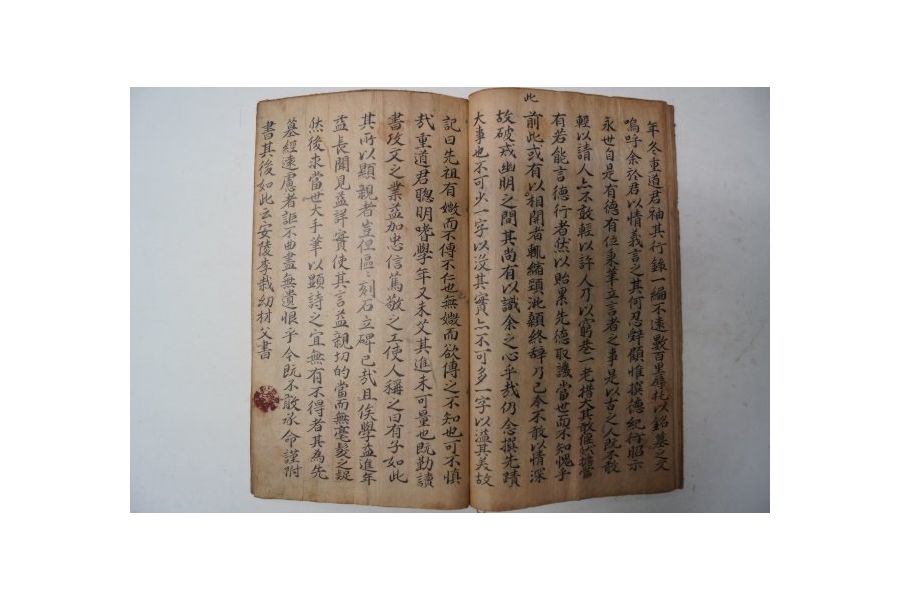 年冬重道君袖其行錄一編不遠數百里辱托以銘墓之文
嗚呼余於君以情義言之其何忍辭顧惟撰德紀行昭示
永世自是有德有位秉筆立言者之事是以古之人既不敢
輕以請人亦不敢輕以許人乃以窮巷一老措大其敢偃然擔當
有若能言德行者然以貽累先德取譏當世而不知愧乎
此
前此或有以相開者輒縮頸泚顙終辭乃已今不敢以情深
故破戒幽明之間其尚有以識余之心乎哉仍念撰先蹟
大事也不可少一字以沒其實亦不可多一字以溢其美故
記曰先祖有媺而不傳不仁也無媺而欲傳之不知也可不慎
哉重道君聰明嗜學年又未艾其進未可量也既勤讀
書攻文之業益加忠信篤敬之工使人稱之曰有子如此
其所以顯親者豈但區〻刻石立碑已哉且俟學益進年
益長聞見益詳實使其言益親切的當而無毫髮之疑
然後求當世大手筆以顯詩之宜無有不得者其為先
墓經遠慮者詎不曲盡無遺恨乎今既不敢承命謹附
書其後如此云安陵李栽幼材父書